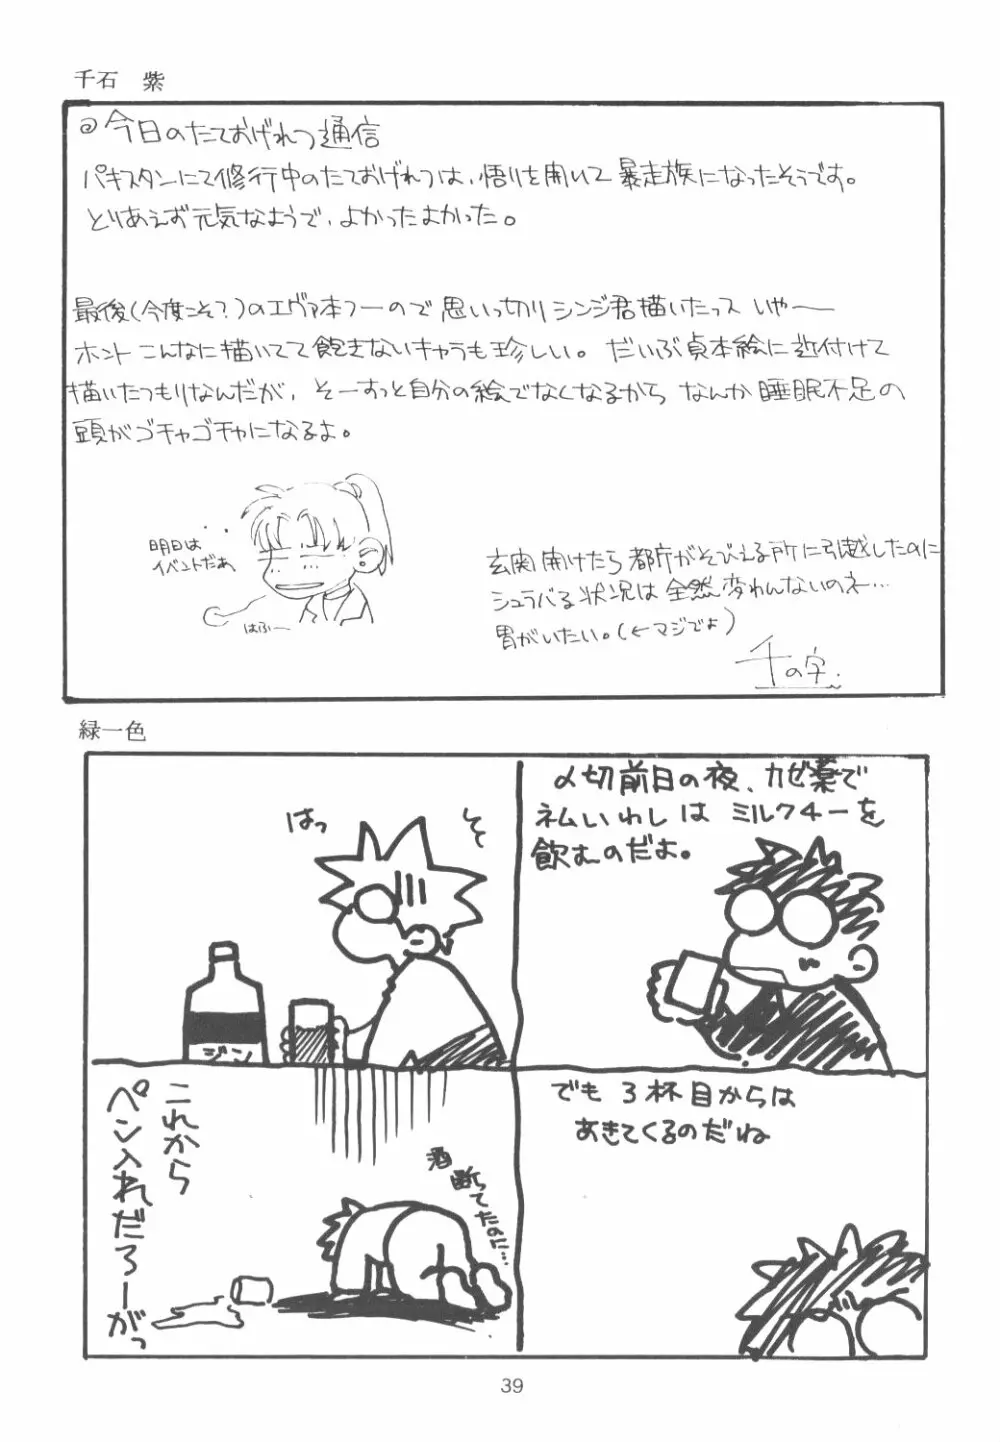 千石　紫
◎今日のたておげれつ通信
パキスタンにて修行中のたておげれつは、悟りを開いて暴走族になったそうです。
とりあえず元気なようで、よかったよかった。
最後(今度こそ?)のエヴァ本フーので思いっ切りシンジ君描いたっス いやー
ホント こんなに描いてて飽きないキャラも珍しい。だいぶ貞本絵に近付けて
描いたつもりなんだが、そーすっと自分の絵でなくなるから なんか睡眠不足の
頭がゴチャゴチャになるよ。
明日は
イベントだぁ
はふー
玄関開けたら都庁がそびえる所に引越したのに
シュラバる状況は全然変わんないのネ…
胃がいたい。(←マジでよ)
千の字
緑一色
〆切前日の夜、カゼ薬で
ネムいわしは ミルクチーを
飲むのだよ。
でも 3杯目からは
あきてくるのだね
そ
はっ
ジン
これから
ペン入れだろーがっ
酒
断ってたのに…
39